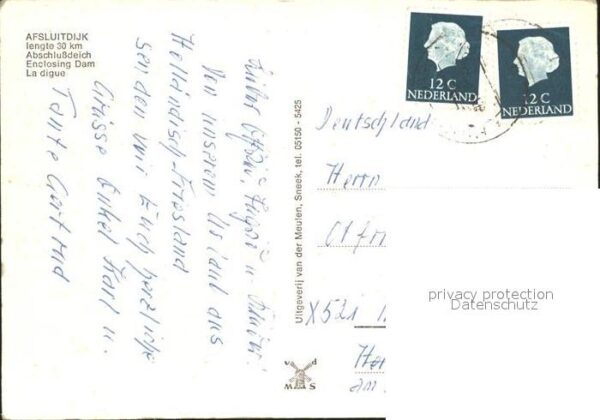 AFSLUITDIJK
lengte 30 km
Abschlußdeich
Enclosing Dam
La digue
12 C
NEDERLAND
12 C
NEDERLAND
Von unserem Urlaub aus
Holländisch-Friesland
senden wir Euch herzliche
Grüsse Onkel Karl u.
Tante Gertrud
Uitgeverij van der Meulen, Sneek, tel. 05150 - 5425
Deutschland
Herrn
X521
privacy protection
Datenschutz
v d
M S
am